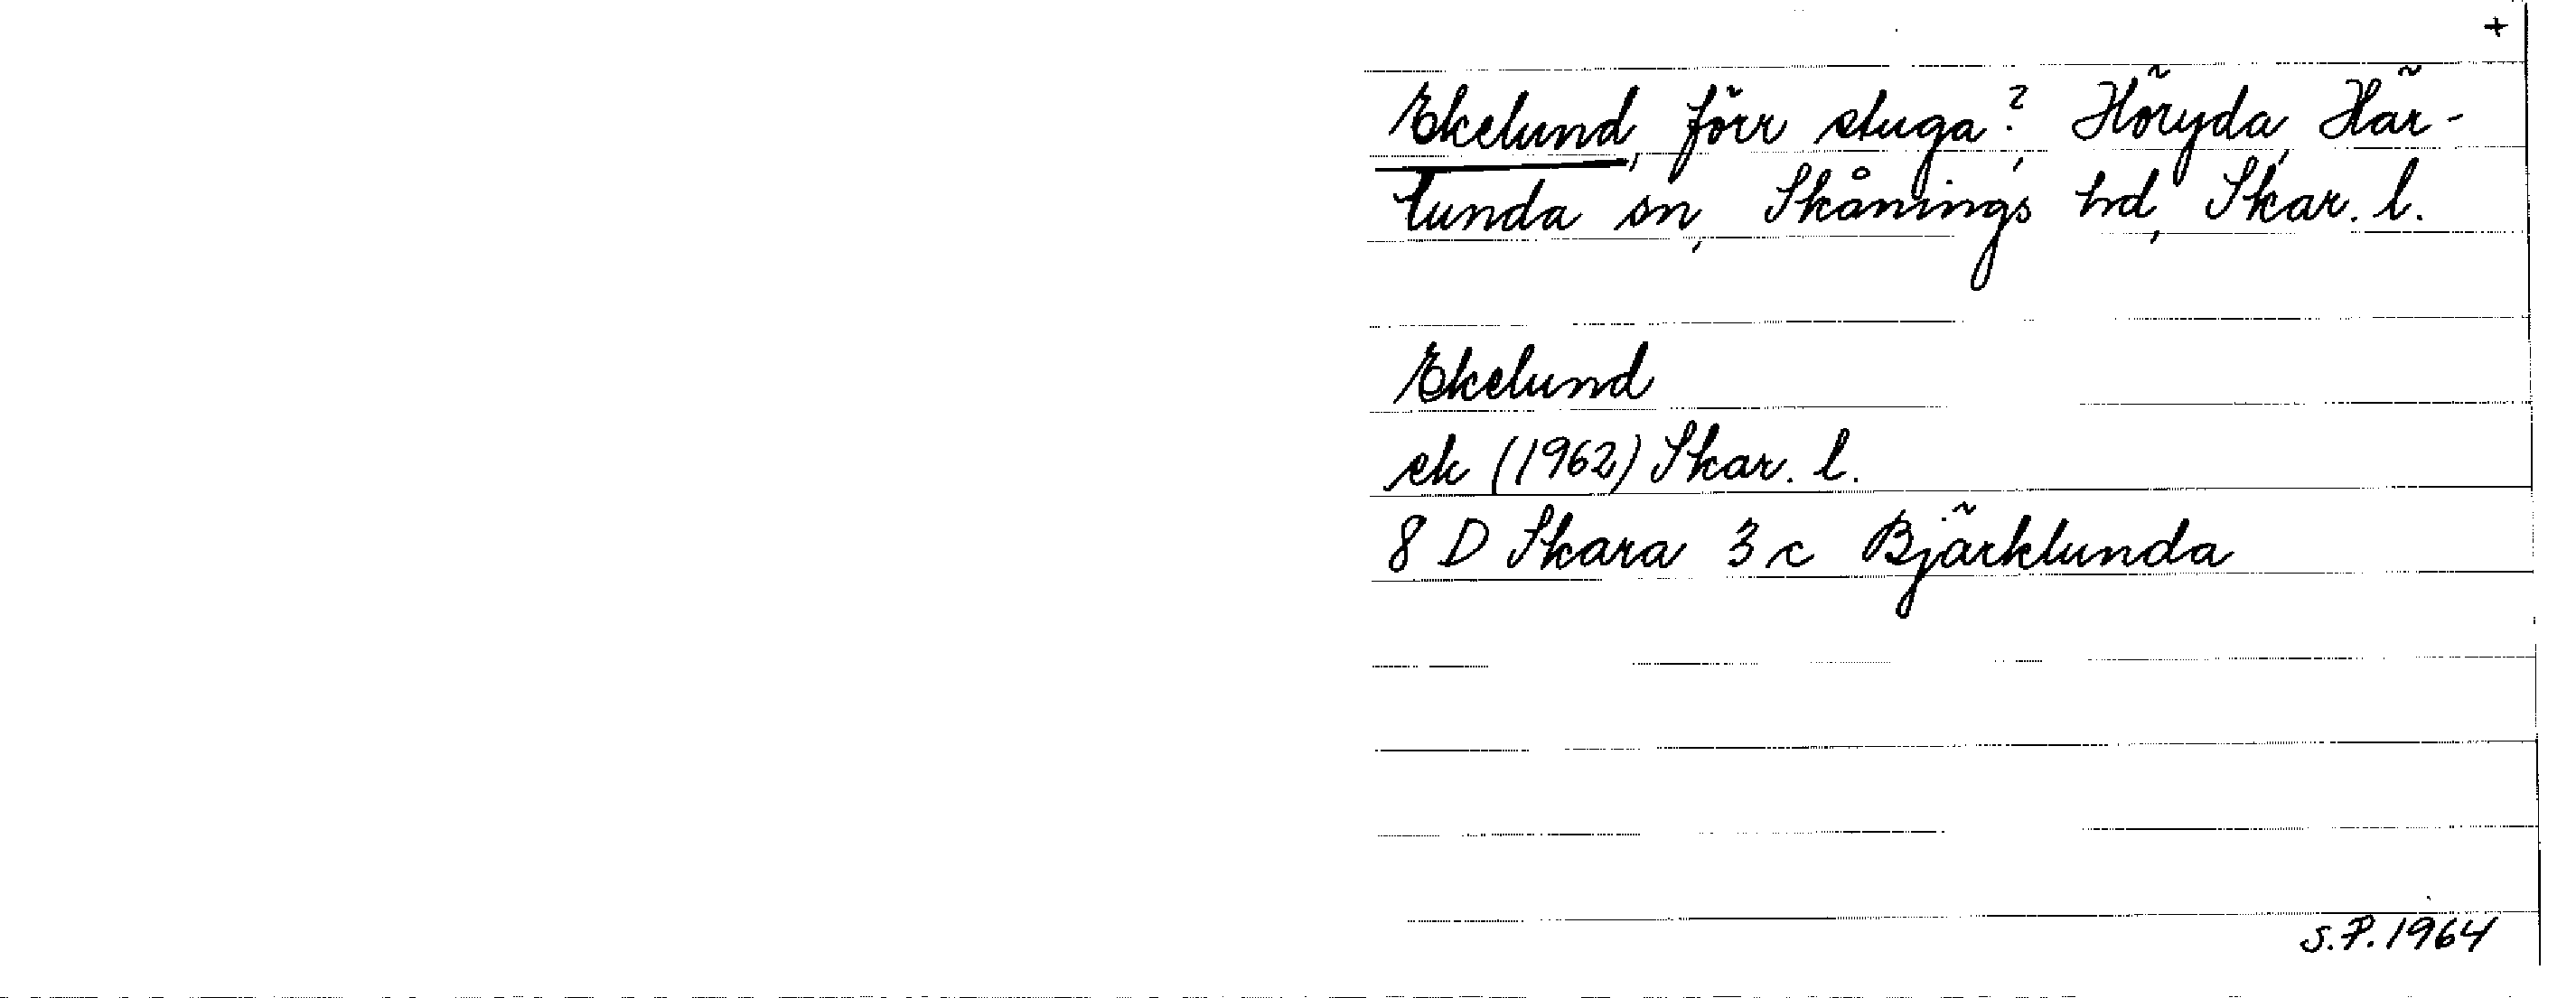 +
Ekelund, förr stuga?, Höryda, Här-
lunda sn, Skånings hd, Skar. l.
Ekelund
ek (1962) Skar. l.
8 D Skara 3 c Bjärklunda
S.P. 1964